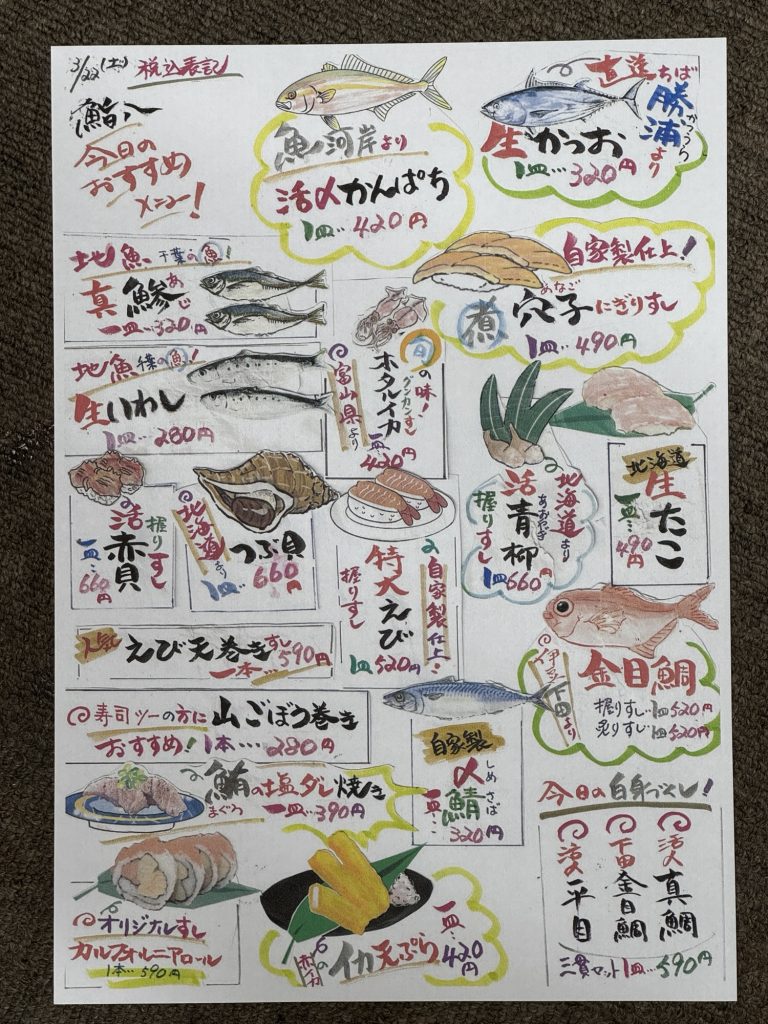 3/22(土) 税込表記
鮨八
今日の
おすすめ
メニュー!
魚河岸より
活〆かんぱち
1皿…420円
直送ちば
勝浦より
かつうら
生かつお
1皿…320円
地魚 千葉の魚!
真鯵
あじ
一皿…320円
自家製仕上!
煮穴子にぎりすし
あなご
1皿…490円
地魚 千葉の魚!
生いわし
1皿…280円
旬の味!
ホタルイカ
グンカンすし
富山県より
一皿…420円
北海道より
活青柳
あおやぎ
握りすし
1皿660円
北海道
生たこ
一皿…490円
活赤貝
握りすし
一皿…660円
北海道より
つぶ貝
1皿660円
自家製仕上!
特大えび
握りすし
1皿520円
人気
えび天巻きすし
一本…590円
伊豆下田より
金目鯛
握りすし…1皿520円
炙りすし…1皿520円
寿司ツーの方に
おすすめ!
山ごぼう巻き
1本…280円
自家製
〆鯖
しめさば
一皿…320円
鮪の塩ダレ焼き
まぐろ
一皿…390円
今日の白身づくし!
活〆真鯛
下田金目鯛
活〆平目
三貫セット1皿…590円
オリジナルすし
カルフォルニアロール
1本…590円
イカ天ぷら
一皿…420円